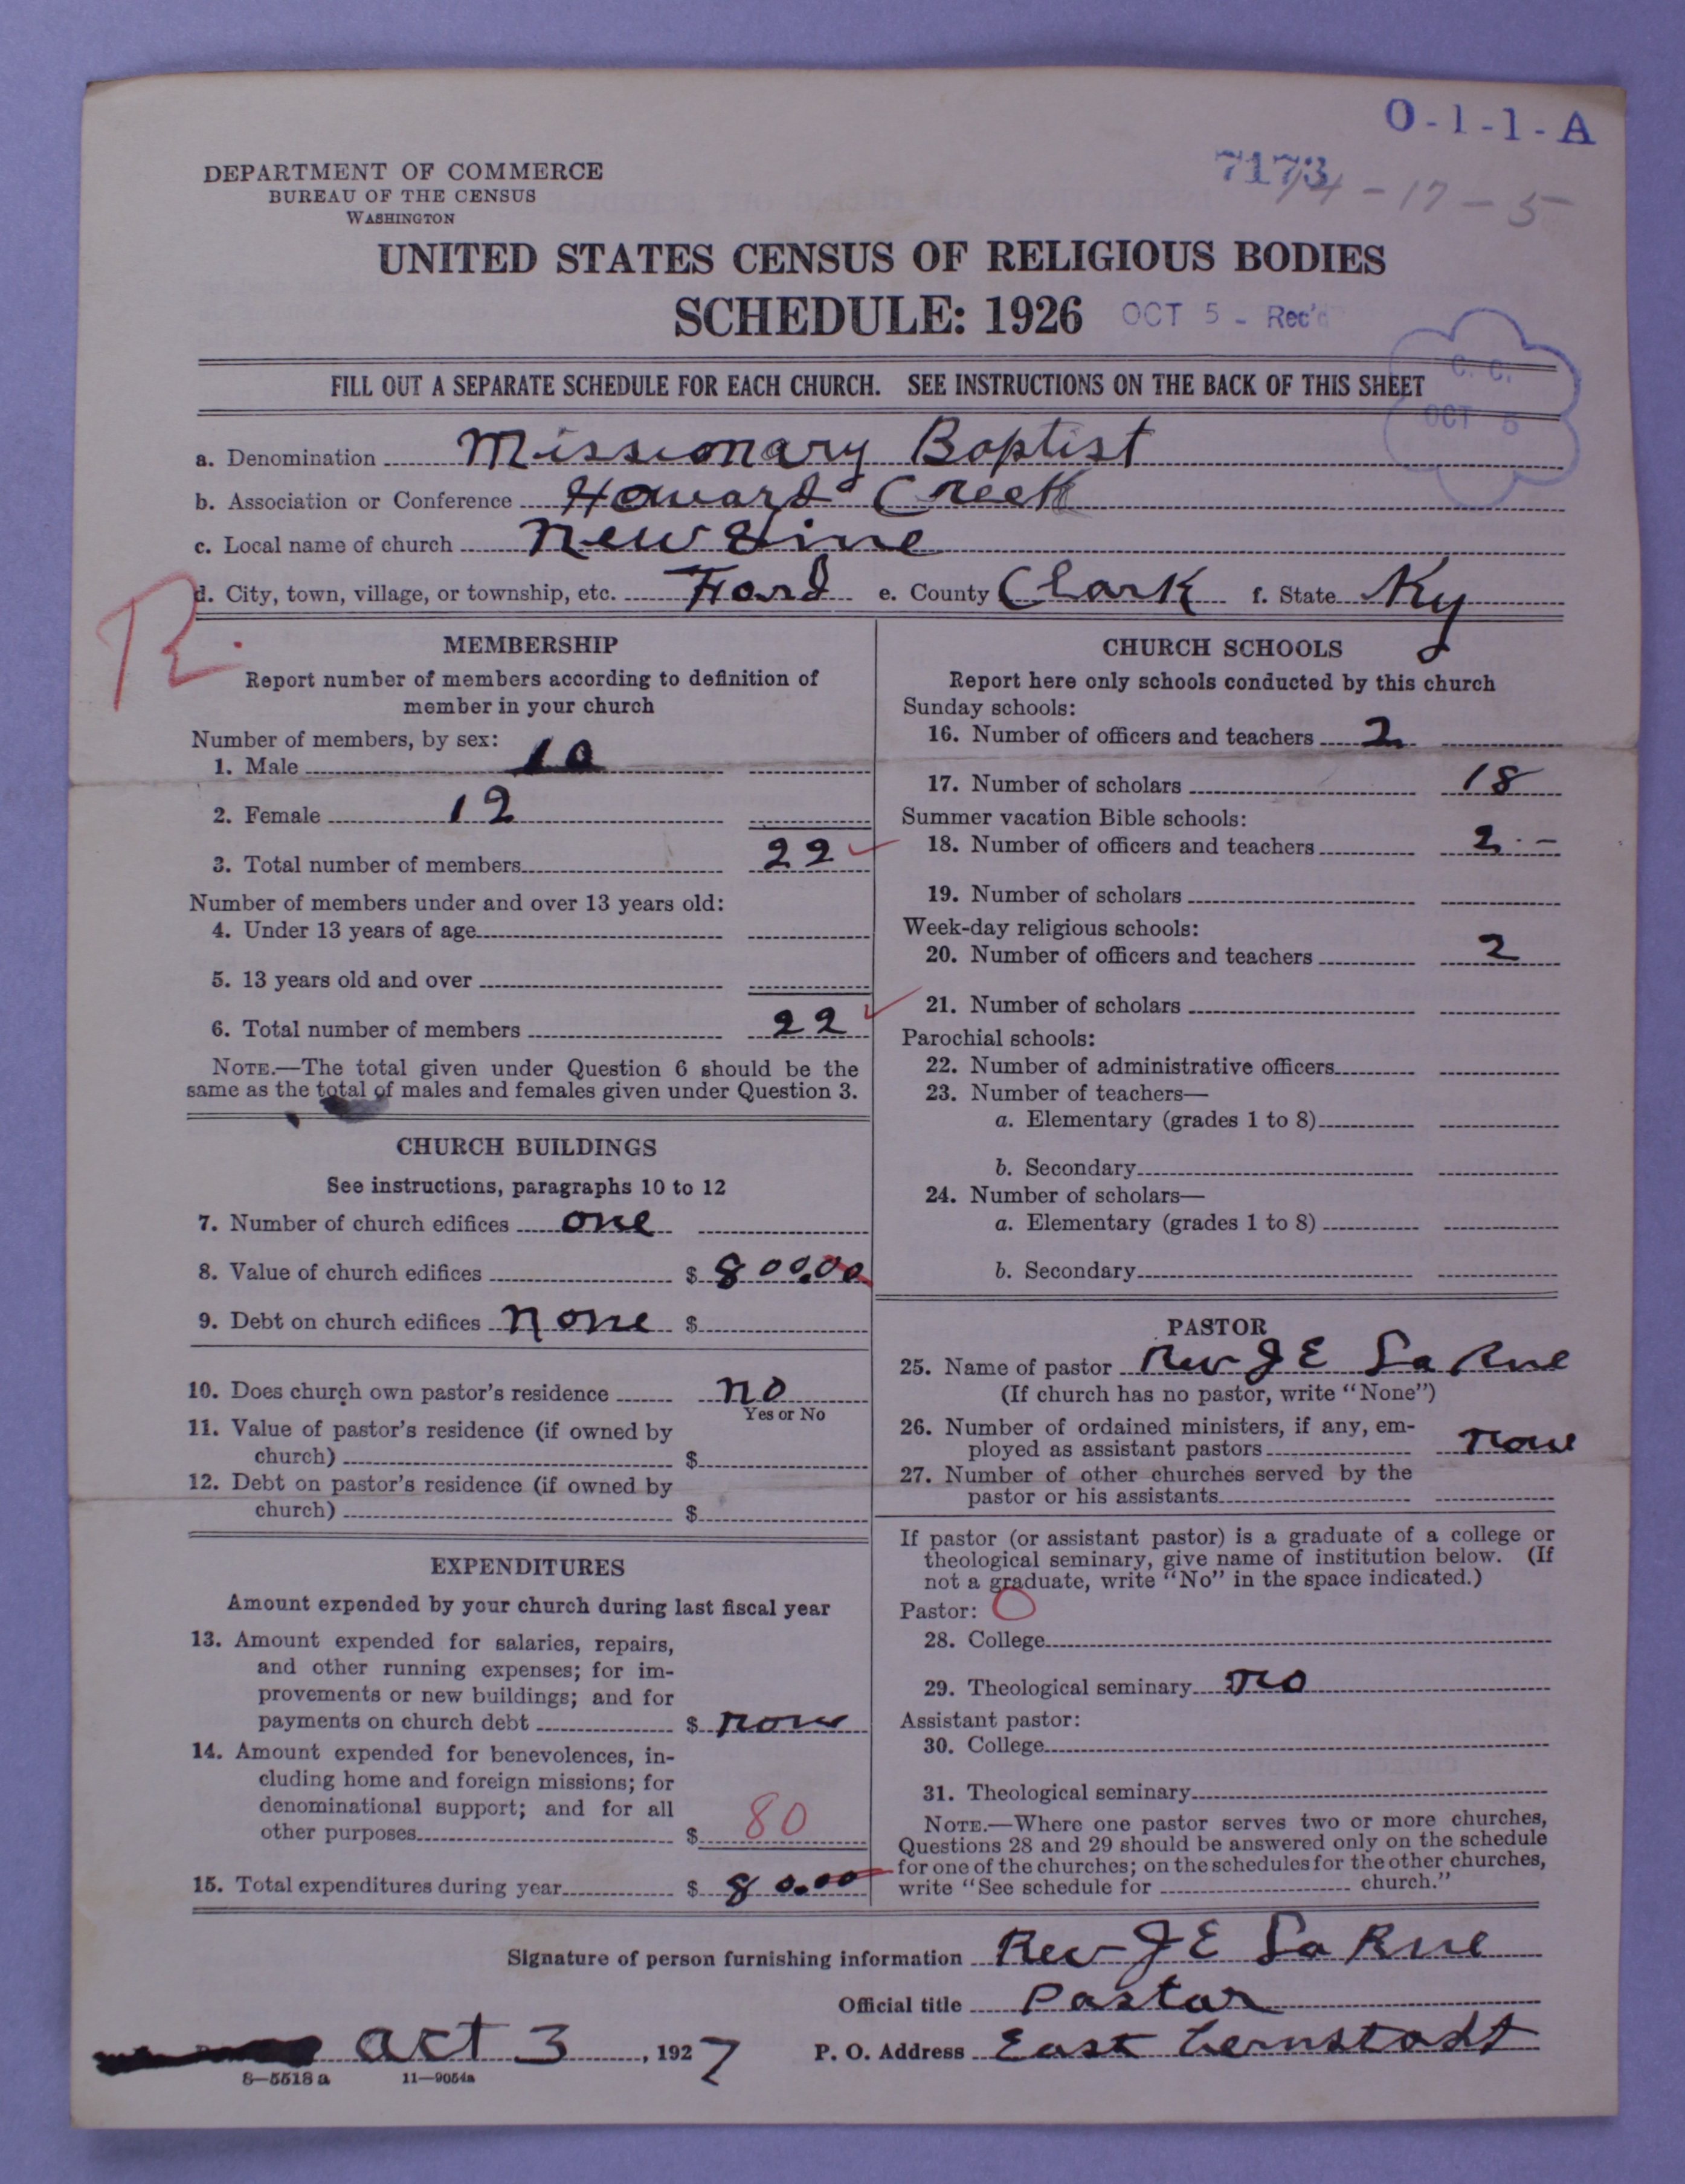 O-1-1-A
7173
14-17-5
DEPARTMENT OF COMMERCE
BUREAU OF THE CENSUS
WASHINGTON
UNITED STATES CENSUS OF RELIGIOUS BODIES
SCHEDULE: 1926 OCT 5 - Rec'd
FILL OUT A SEPARATE SCHEDULE FOR EACH CHURCH. SEE INSTRUCTIONS ON THE BACK OF THIS SHEET
C. C.
OCT 5
a. Denomination Missionary Baptist
b. Association or Conference Howard Creek
c. Local name of church New Line
d. City, town, village, or township, etc. Ford e. County Clark f. State Ky
R.
MEMBERSHIP
Report number of members according to definition of
member in your church
Number of members, by sex:
1. Male 10
2. Female 12
3. Total number of members 22
Number of members under and over 13 years old:
4. Under 13 years of age
5. 13 years old and over
6. Total number of members 22
NOTE.—The total given under Question 6 should be the
same as the total of males and females given under Question 3.
CHURCH BUILDINGS
See instructions, paragraphs 10 to 12
7. Number of church edifices one
8. Value of church edifices $ 800.00
9. Debt on church edifices none $
10. Does church own pastor's residence no
Yes or No
11. Value of pastor's residence (if owned by
church) $
12. Debt on pastor's residence (if owned by
church) $
EXPENDITURES
Amount expended by your church during last fiscal year
13. Amount expended for salaries, repairs,
and other running expenses; for im-
provements or new buildings; and for
payments on church debt $ none
14. Amount expended for benevolences, in-
cluding home and foreign missions; for
denominational support; and for all
other purposes $ 80
15. Total expenditures during year $ 80.00
CHURCH SCHOOLS
Report here only schools conducted by this church
Sunday schools:
16. Number of officers and teachers 2
17. Number of scholars 18
Summer vacation Bible schools:
18. Number of officers and teachers 2 -
19. Number of scholars
Week-day religious schools:
20. Number of officers and teachers 2
21. Number of scholars
Parochial schools:
22. Number of administrative officers
23. Number of teachers—
a. Elementary (grades 1 to 8)
b. Secondary
24. Number of scholars—
a. Elementary (grades 1 to 8)
b. Secondary
PASTOR
25. Name of pastor Rev J E La Rue
(If church has no pastor, write "None")
26. Number of ordained ministers, if any, em-
ployed as assistant pastors none
27. Number of other churches served by the
pastor or his assistants
If pastor (or assistant pastor) is a graduate of a college or
theological seminary, give name of institution below. (If
not a graduate, write "No" in the space indicated.)
Pastor: O
28. College
29. Theological seminary no
Assistant pastor:
30. College
31. Theological seminary
NOTE.—Where one pastor serves two or more churches,
Questions 28 and 29 should be answered only on the schedule
for one of the churches; on the schedules for the other churches,
write "See schedule for church."
Signature of person furnishing information Rev J E La Rue
Official title Pastor
oct 3, 1927 P. O. Address East Bernstadt
8—5518a 11—9054a